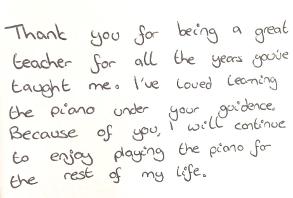 Thank you for being a great
teacher for all the years you've
taught me. I've loved learning
the piano under your guidence.
Because of you, I will continue
to enjoy playing the piano for
the rest of my life.